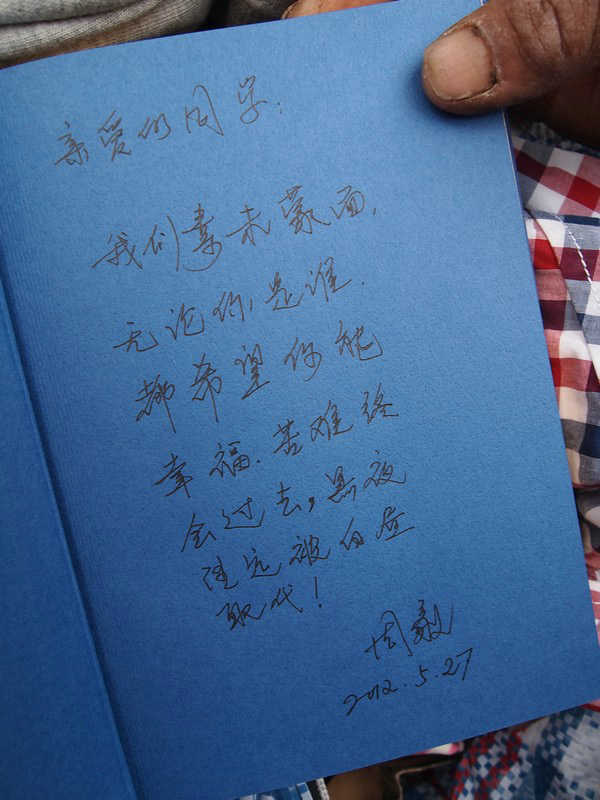 亲爱的同学:
我们素未蒙面,
无论你是谁,
都希望你能
幸福.苦难终
会过去,黑夜
永远被白昼
取代!
周毅
2012.5.27